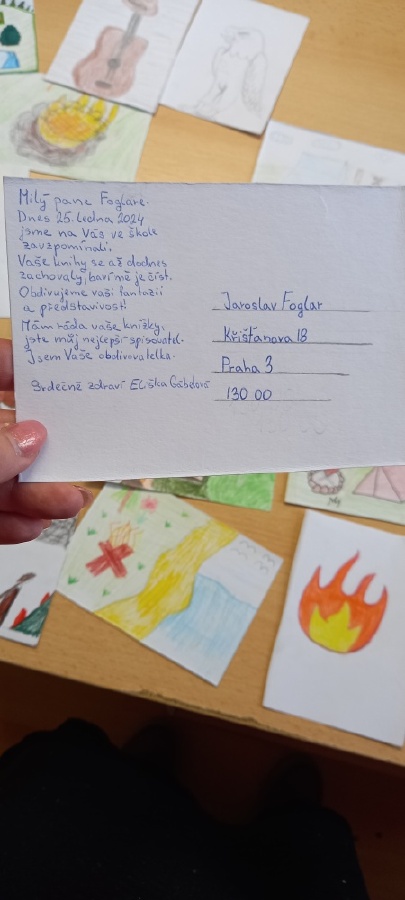 Milý pane Foglare.
Dnes 25. ledna 2024
jsme na Vás ve škole
zavzpomínali.
Vaše knihy se až dodnes
zachovaly, baví mě je číst.
Obdivujeme vaši fantazii
a představivost!
Mám ráda vaše knížky,
jste můj nejlepší spisovatel.
Jsem Vaše obdivovatelka.
Srdečně zdraví Eliška Gabelová
Jaroslav Foglar
Křišťanova 18
Praha 3
130 00